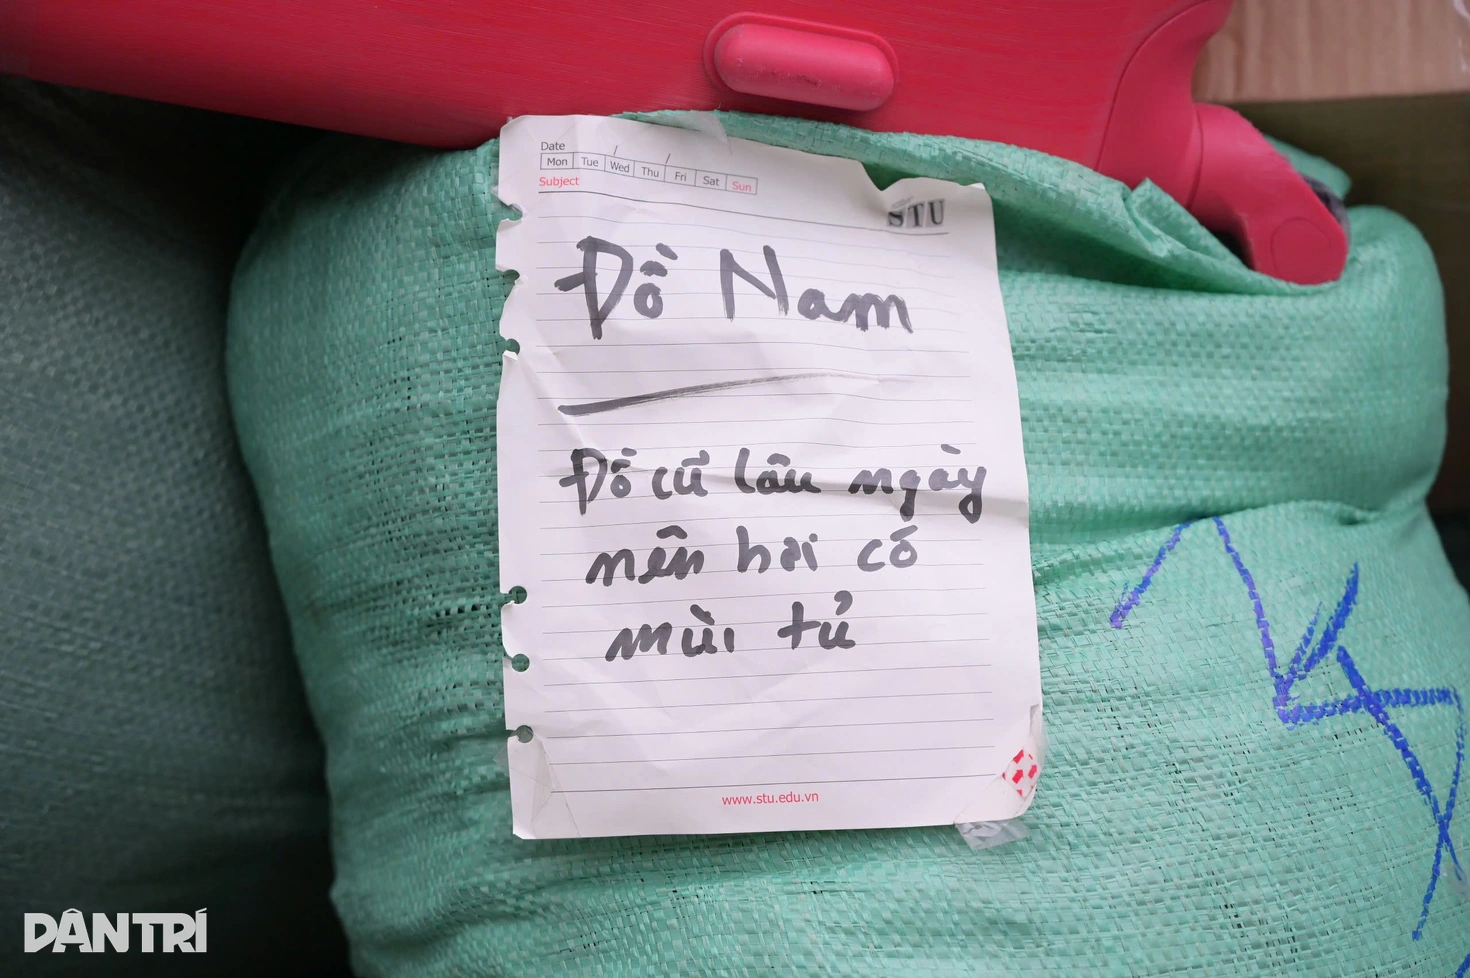 Date / /
Mon Tue Wed Thu Fri Sat Sun
Subject
STU
Đồ Nam
Đồ cũ lâu ngày
nên hơi có
mùi tủ
www.stu.edu.vn
DÂN TRÍ